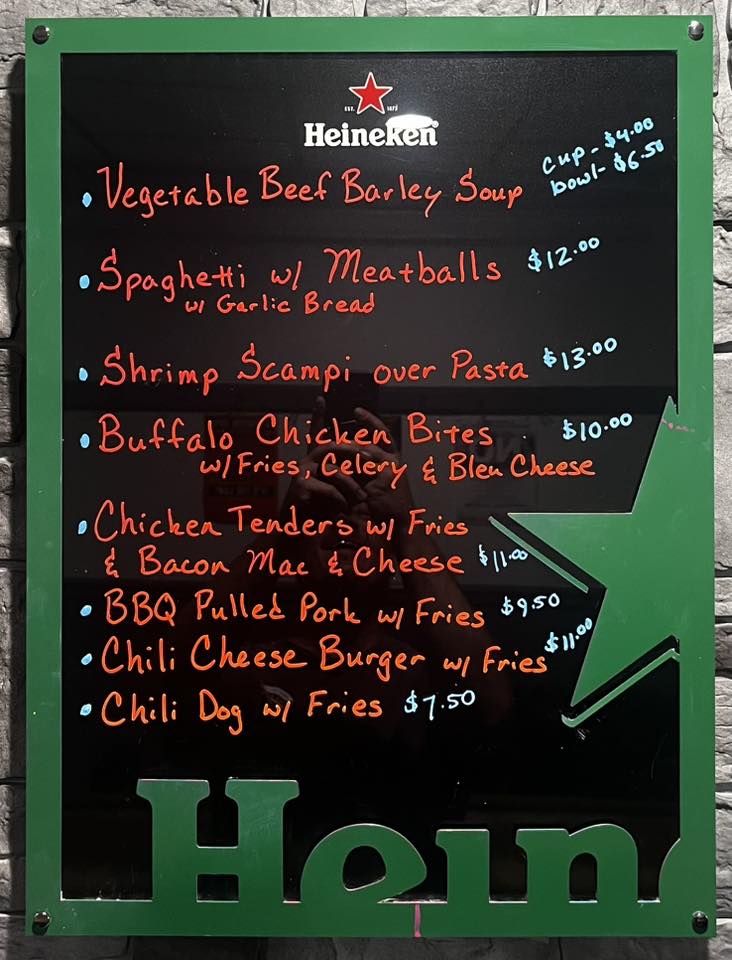 EST. 1873
Heineken®
• Vegetable Beef Barley Soup cup - $4.00
bowl - $6.50
• Spaghetti w/ Meatballs $12.00
w/ Garlic Bread
• Shrimp Scampi over Pasta $13.00
• Buffalo Chicken Bites $10.00
w/ Fries, Celery & Bleu Cheese
• Chicken Tenders w/ Fries
& Bacon Mac & Cheese $11.00
• BBQ Pulled Pork w/ Fries $9.50
• Chili Cheese Burger w/ Fries $11.00
• Chili Dog w/ Fries $7.50
Hein